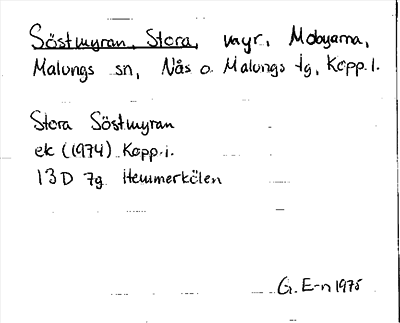 Söstmyran, Stora, myr, Mobyarna,
Malungs sn, Nås o. Malungs tg, Kopp.l.
Stora Söstmyran
ek (1974) Kopp.i.
13D 7g Hemmerkölen
G. E-n 1975